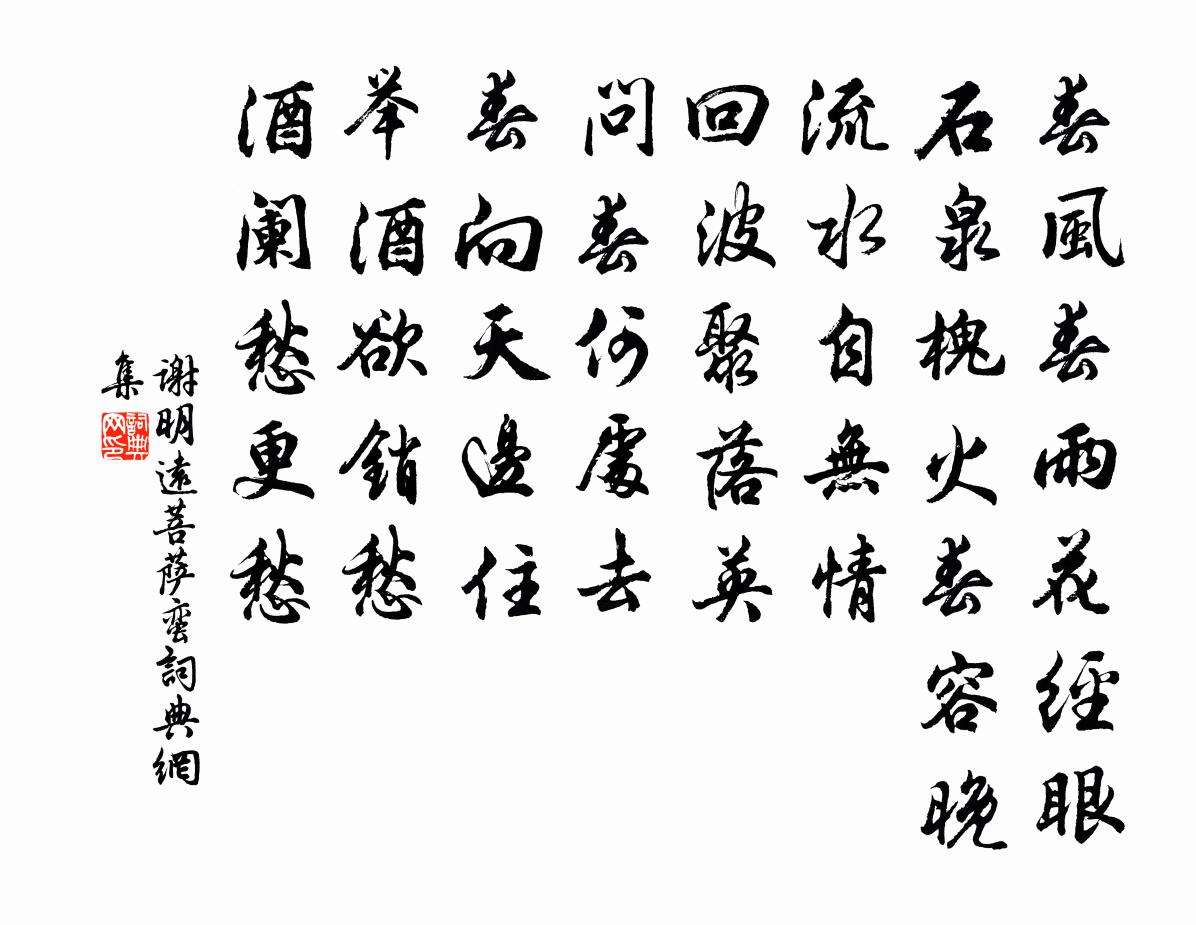 春風春雨花經眼
石泉槐火春容晚
流水自無情
回波聚落英
問春何處去
春向天邊住
举酒欲銷愁
酒阑愁更愁
謝明遠菩萨蛮詞典網
集
詞典
网印